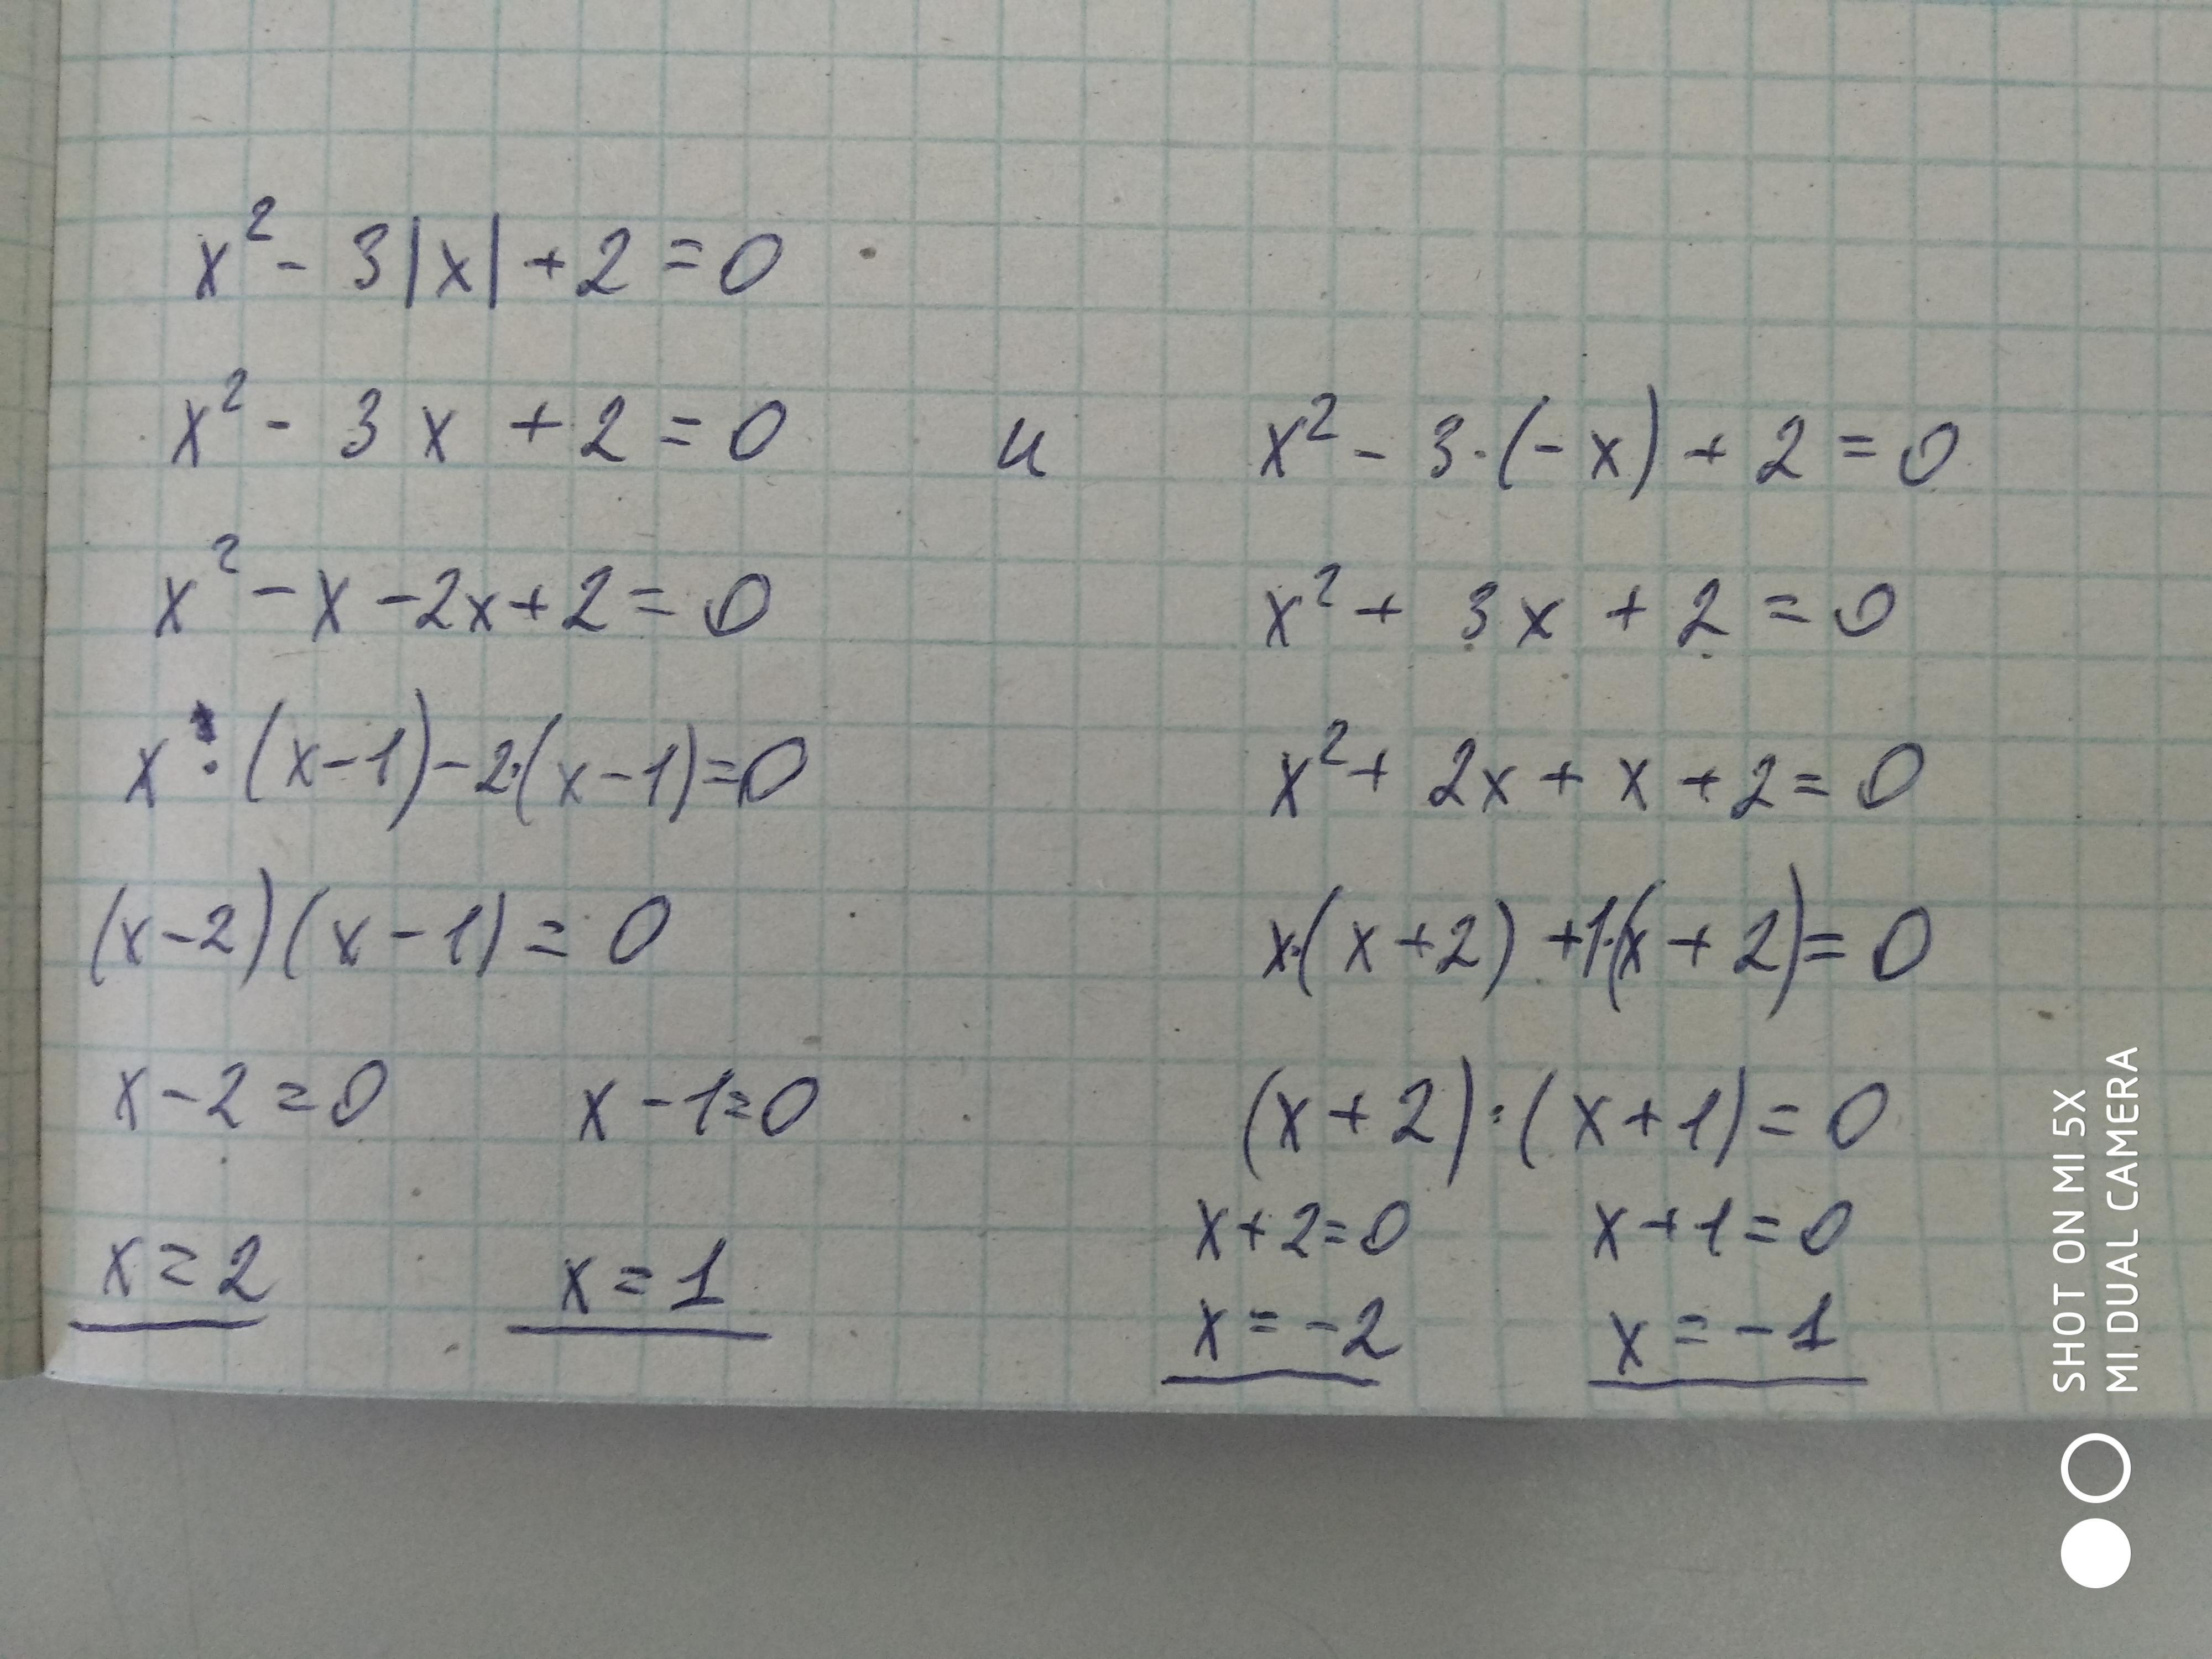 x² - 3|x| + 2 = 0
x² - 3x + 2 = 0 и x² - 3·(-x) + 2 = 0
x² - x - 2x + 2 = 0
x·(x-1) - 2·(x-1) = 0
(x-2)(x-1) = 0
x-2=0 x-1=0
x=2 x=1
x² + 3x + 2 = 0
x² + 2x + x + 2 = 0
x·(x+2) + 1·(x+2) = 0
(x+2)·(x+1) = 0
x+2=0 x+1=0
x=-2 x=-1
SHOT ON MI 5X
MI DUAL CAMERA